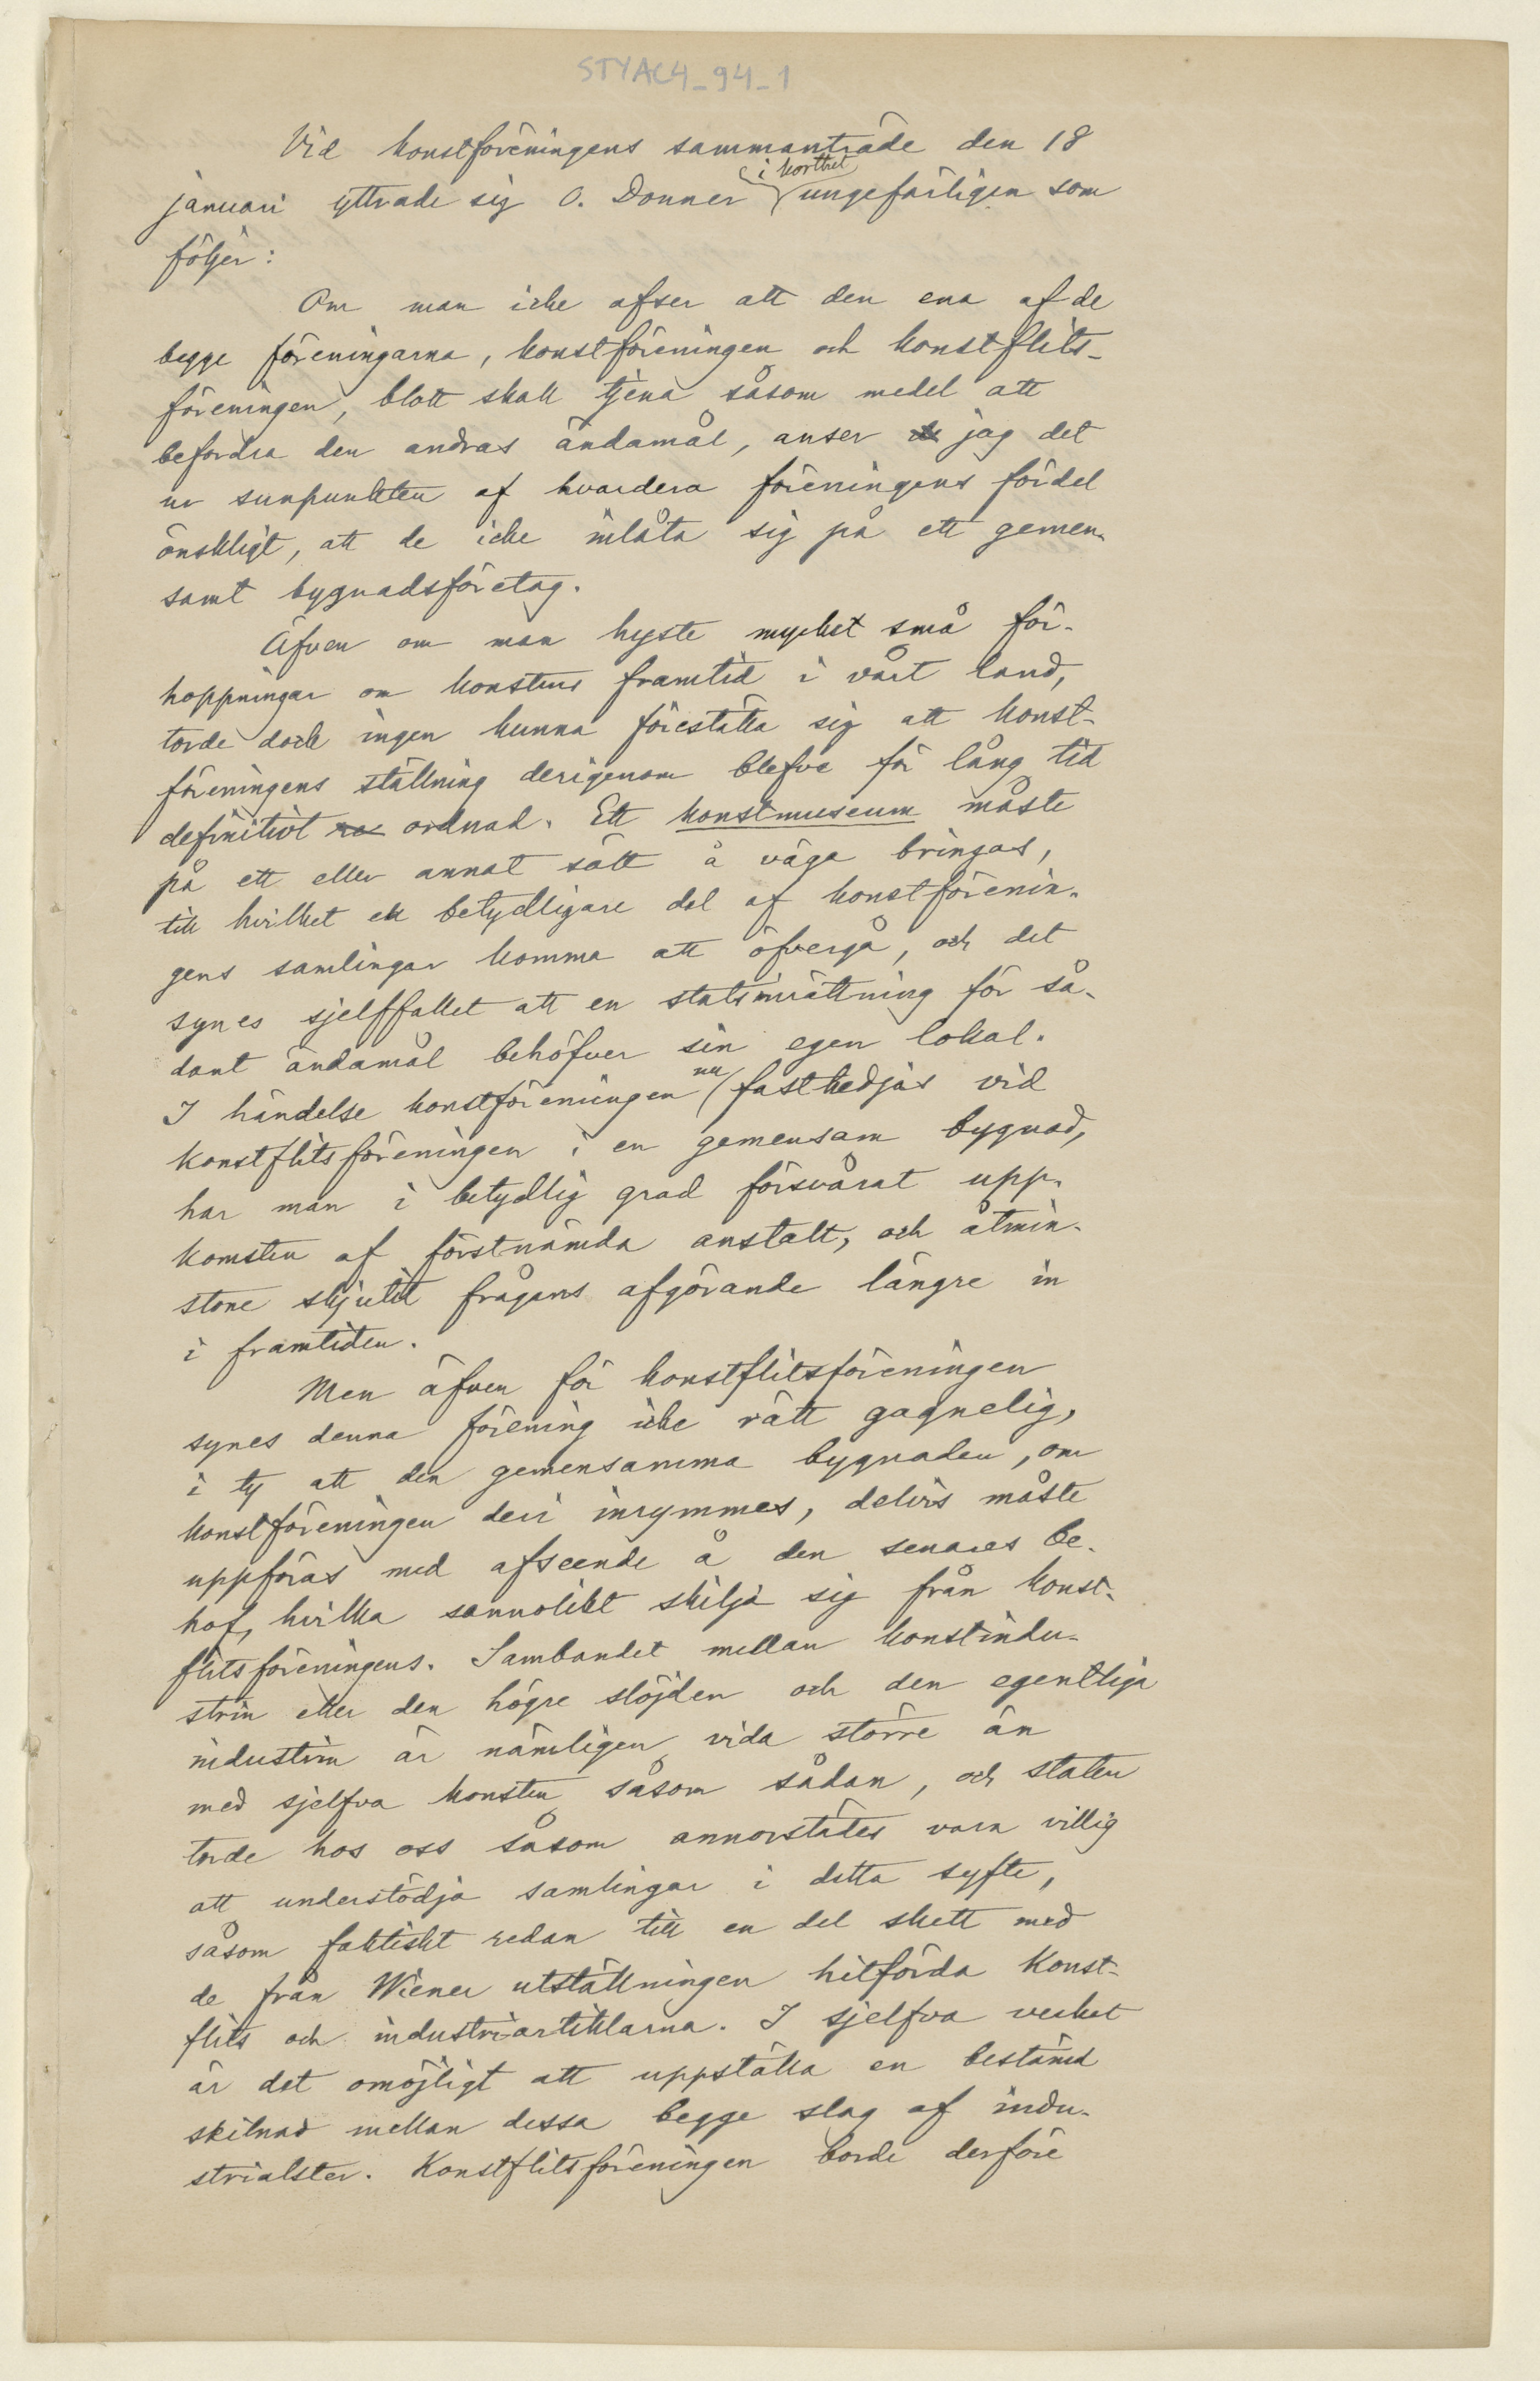 STYAC4_94_1
Vid konstföreningens sammanträde den 18
i korthet
januari yttrade sig O. Donner ungefärligen som
följer:
Om man icke afser att den ena af de
begge föreningarna, konstföreningen och konstflits-
föreningen, blott skall tjena såsom medel att
befordra den andras ändamål, anser jag det
ur synpunkten af hvardera föreningens fördel
önskligt, att de icke inlåta sig på ett gemen-
samt bygnadsföretag.
Äfven om man hyste mycket små för-
hoppningar om konstens framtid i vårt land,
torde dock ingen kunna föreställa sig att konst-
föreningens ställning derigenom blefve för lång tid
definitivt ordnad. Ett konstmuseum måste
på ett eller annat sätt å väga bringas,
till hvilket en betydligare del af konstförenin-
gens samlingar komma att öfvergå, och det
synes sjelffallet att en statsinrättning för så-
dant ändamål behöfver sin egen lokal.
I händelse konstföreningen nu fastkedjas vid
konstflitsföreningen i en gemensam bygnad,
har man i betydlig grad försvårat upp-
komsten af förstnämda anstalt, och åtmin-
stone skjutit frågans afgörande längre in
i framtiden.
Men äfven för konstflitsföreningen
synes denna förening icke rätt gagnelig,
i ty att den gemensamma bygnaden, om
konstföreningen deri inrymmes, delvis måste
uppföras med afseende å den senares be-
hof, hvilka sannolikt skilja sig från konst-
flitsföreningens. Sambandet mellan konstindu-
strin eller den högre slöjden och den egentliga
industrin är nämligen vida större än
med sjelfva konsten såsom sådan, och staten
torde hos oss såsom annorstädes vara villig
att understödja samlingar i detta syfte,
såsom faktiskt redan till en del skett med
de från Wiener utställningen hitförda konst-
flits och industriartiklarna. I sjelfva verket
är det omöjligt att uppställa en bestämd
skilnad mellan dessa begge slag af indu-
strialster. Konstflitsföreningen borde derföre